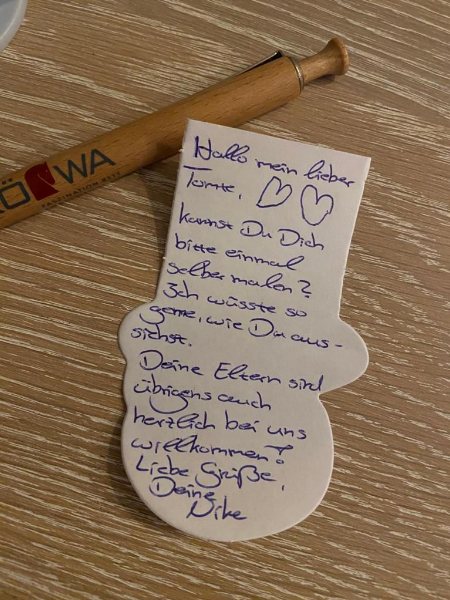 WA
FASZINATION BETT
Hallo mein lieber
Tomte,
kannst Du Dich
bitte einmal
selber malen?
Ich wüsste so
gerne, wie Du aus-
siehst.
Deine Eltern sind
übrigens auch
herzlich bei uns
willkommen!
Liebe Grüße,
Deine
Nike